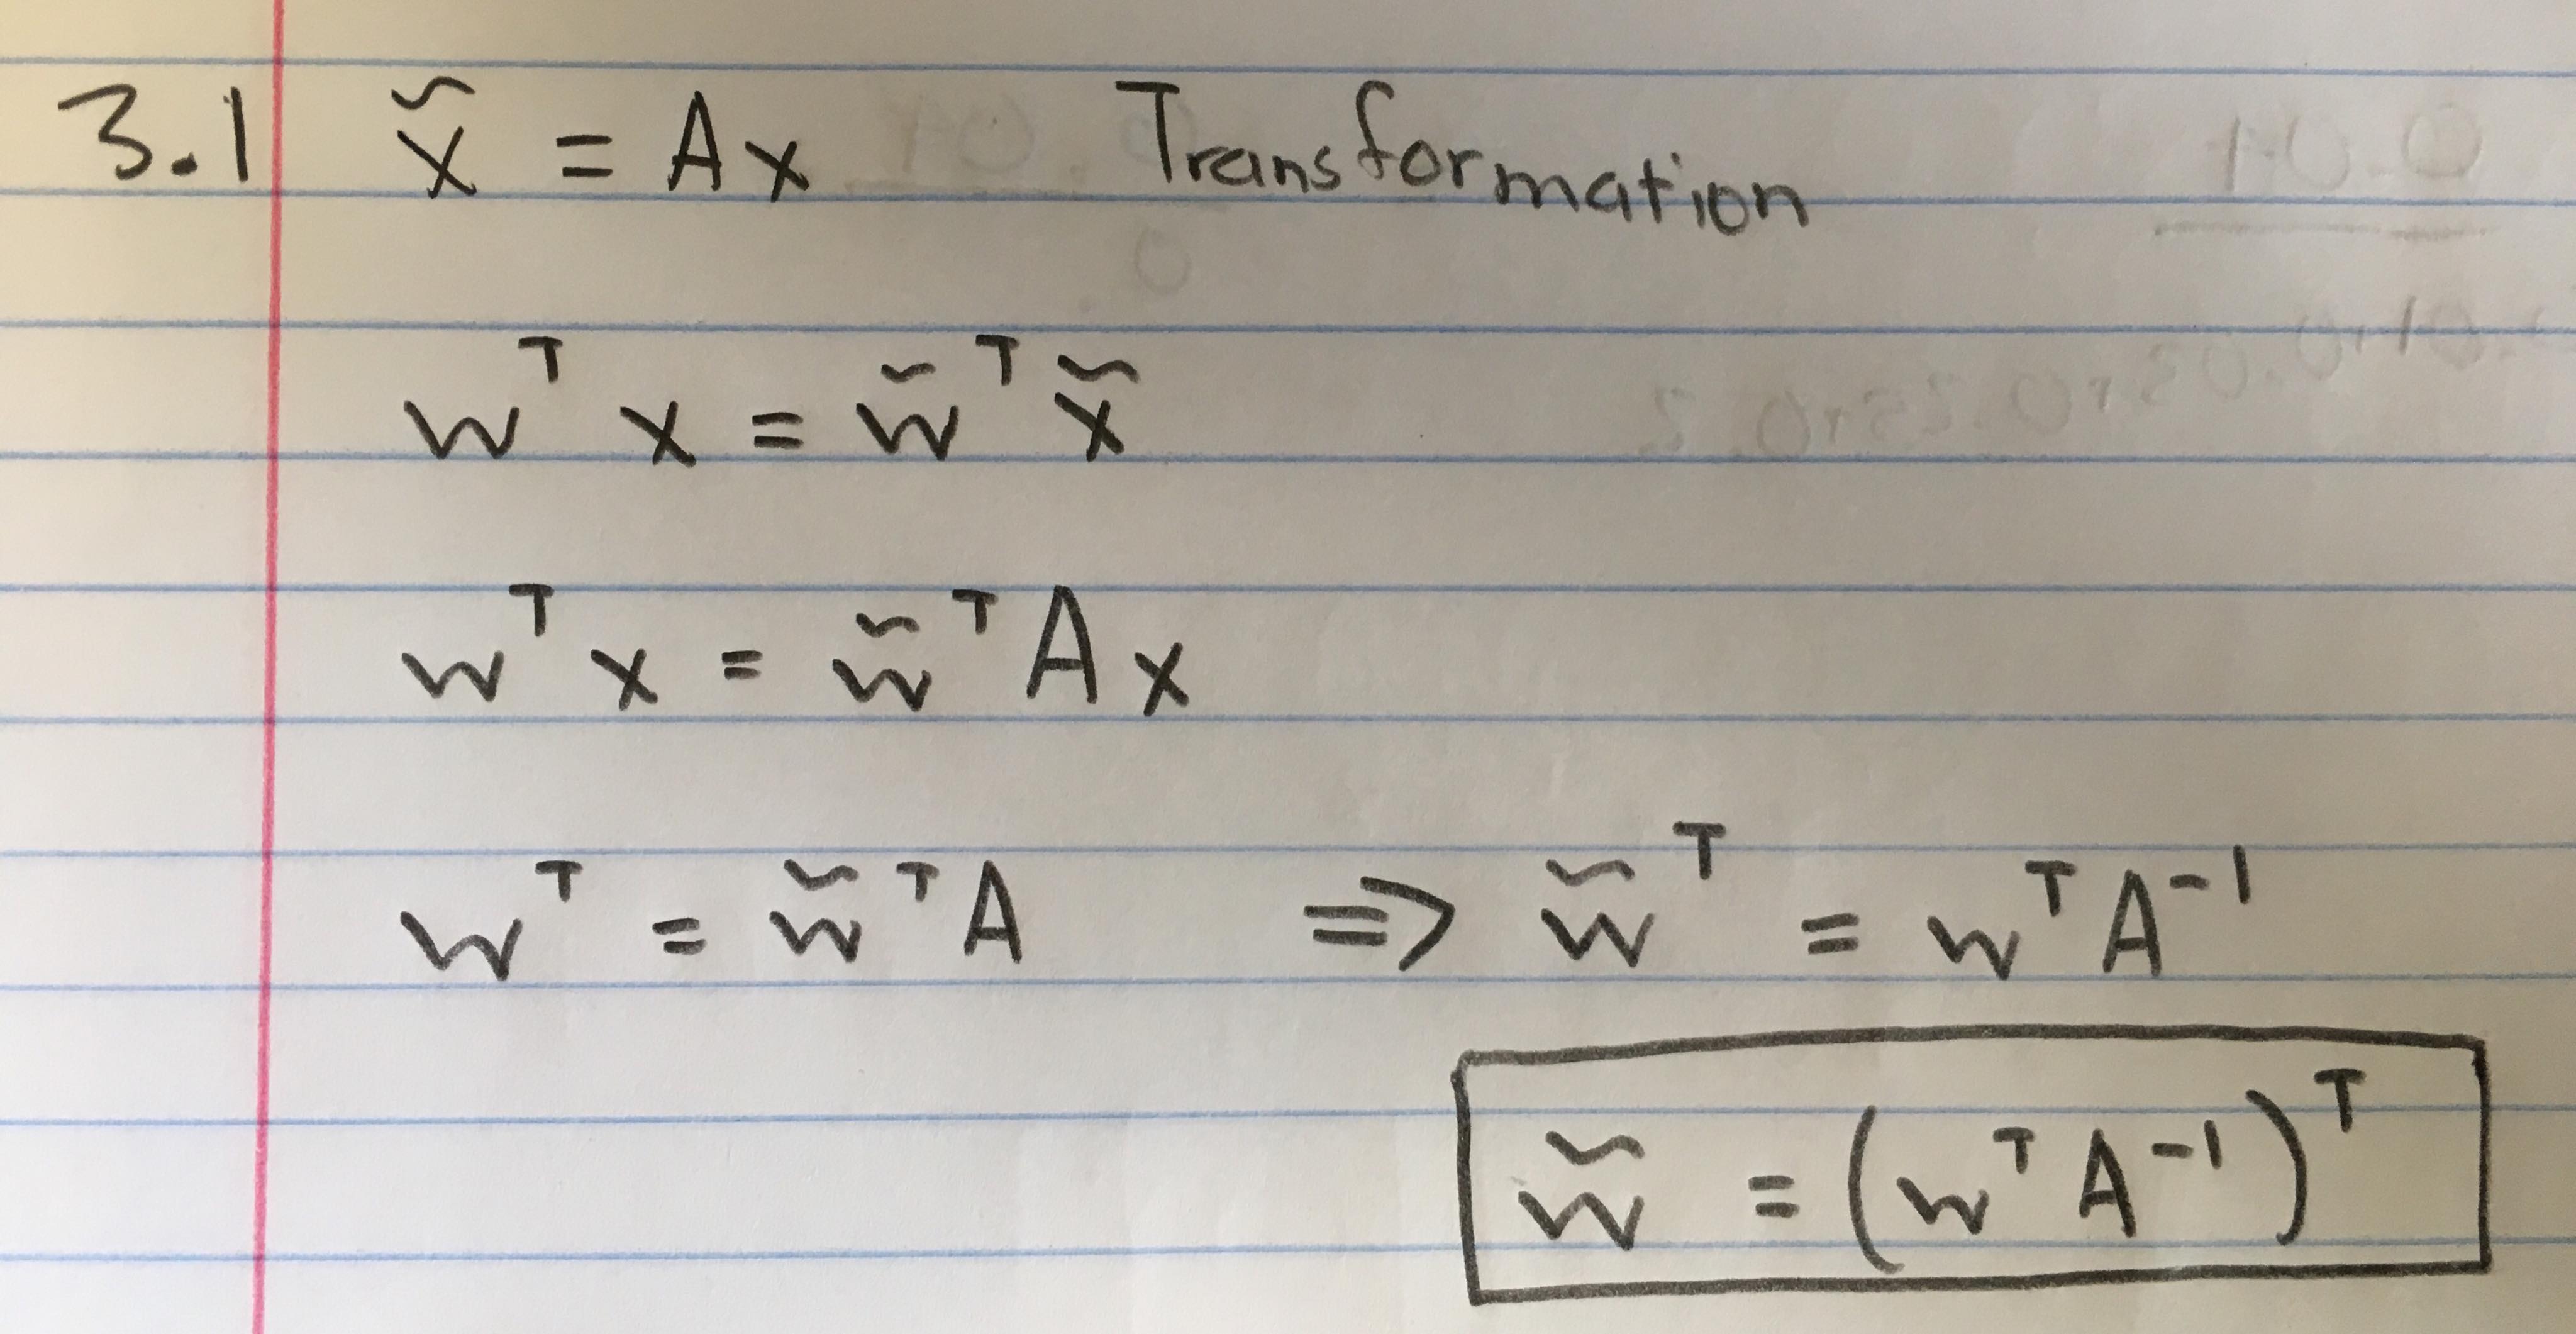 3.1 x̃ = Ax Transformation
wᵀ x = w̃ᵀ x̃
wᵀ x = w̃ᵀ A x
wᵀ = w̃ᵀ A => w̃ᵀ = wᵀ A⁻¹
w̃ = (wᵀ A⁻¹)ᵀ